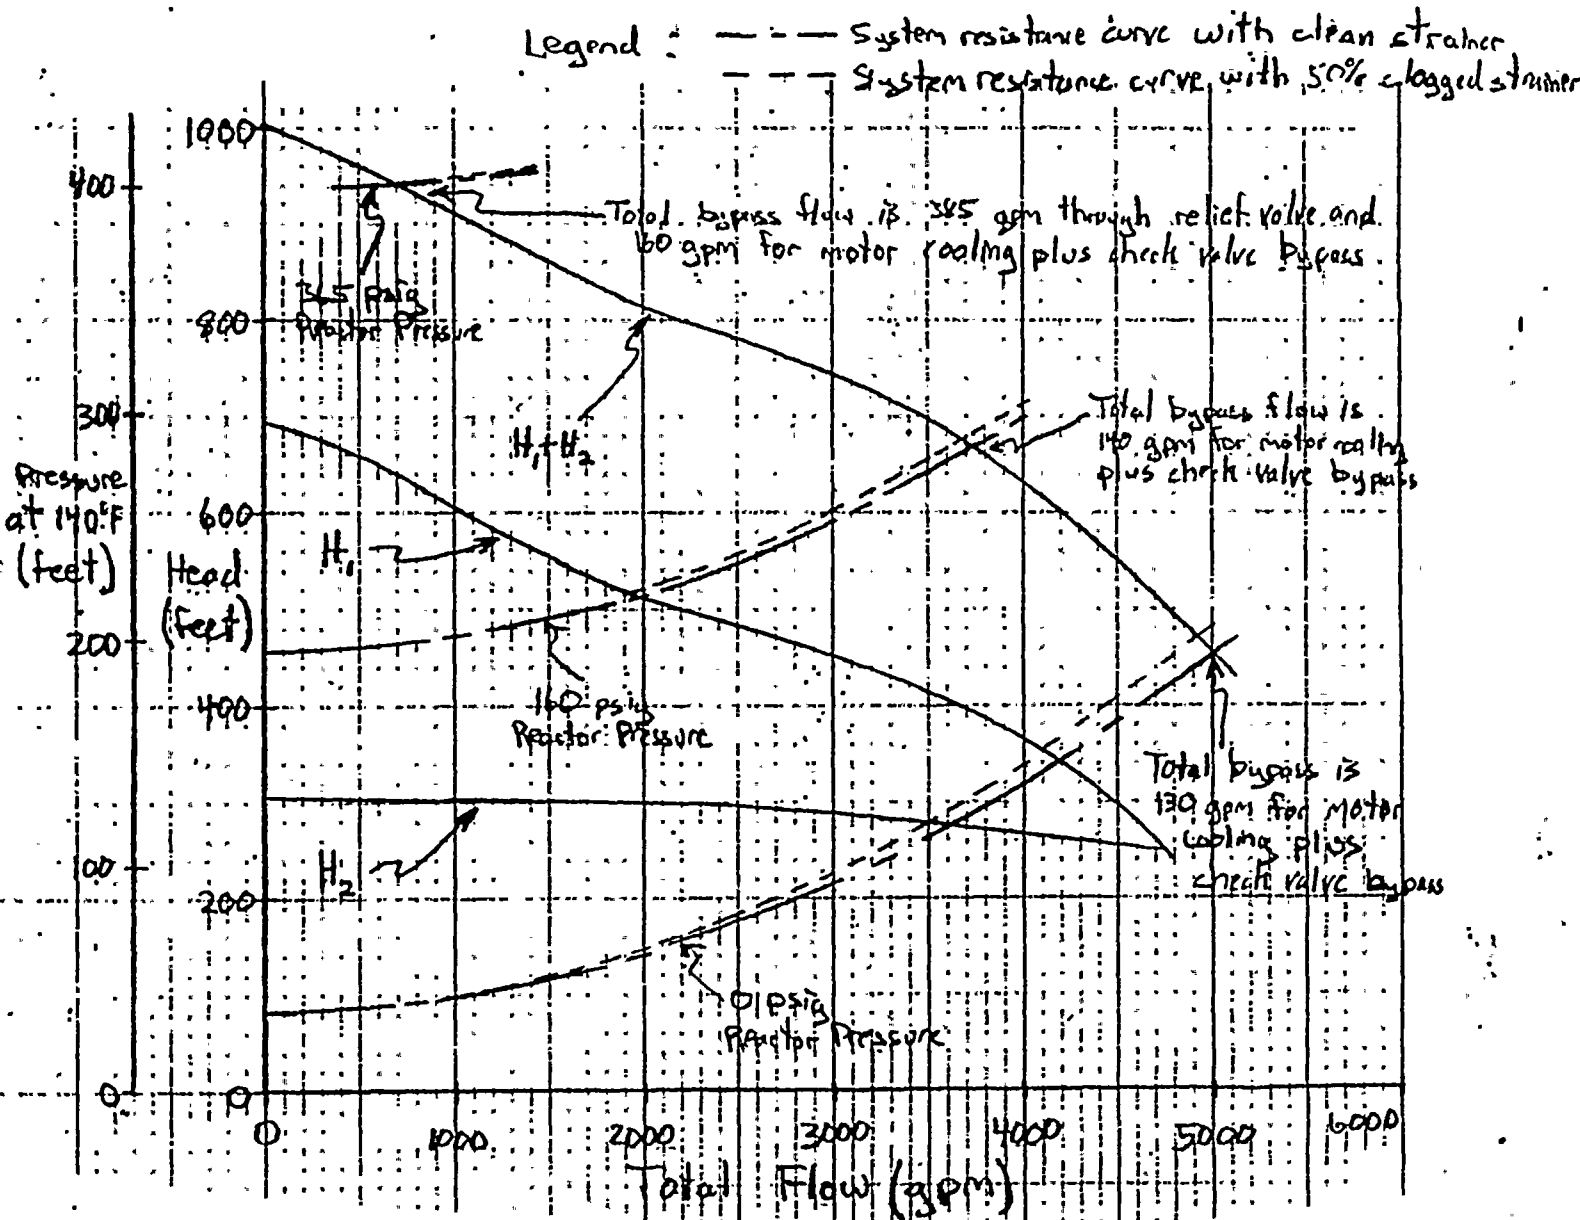 Legend : — - — System resistance curve with clean strainer
– – – System resistance curve with 50% clogged strainer
1000
400
Total bypass flow is 385 gpm through relief valve and
160 gpm for motor cooling plus check valve bypass
365 psig
Reactor Pressure
800
300
H1+H2
Total bypass flow is
140 gpm for motor cooling
plus check valve bypass
Pressure
at 140°F
(feet)
600
H1
Head
(feet)
200
160 psig
Reactor Pressure
400
Total bypass is
130 gpm for motor
cooling plus
check valve bypass
100
H2
200
0 psig
Reactor Pressure
0
0
0
1000
2000
3000
4000
5000
6000
Total Flow (gpm)